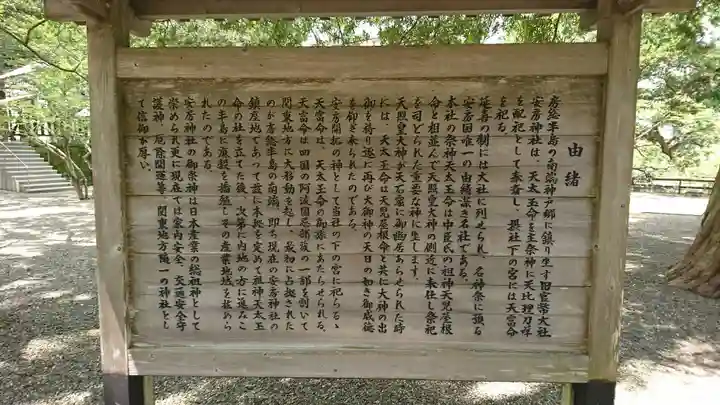 由緒
房総半島の南端神戸郷に鎮り坐す旧官幣大社
安房神社は、天太玉命を主祭神に天比理刀咩命
を配祀として奉斎し、摂社下の宮には天富命
を祀る。
延喜の制には大社に列せられ、名神祭に預る
安房国唯一の由緒高き名社である。
本社の祭神天太玉命は中臣氏の祖神天児屋根
命と相並んで天照皇大神の側近に奉仕し祭祀
を司どられた重要な神に坐します。
天照皇大神が天石窟に御幽居あらせられた時
には、天太玉命は天児屋根命と共に大神の出
御を祷り遂に再び大御神の天日の如き御威徳
を仰ぎ奉られたのである。
安房開拓の神として当社の下の宮に祀らるゝ
天富命は、天太玉命の御孫にあたらせられる、
天富命は四国の阿波国忌部族の一部を割いて
関東地方に大移動を起し、最初に占拠された
のが房総半島の南端、即ち現在の安房神社の
鎮座地であって茲に本拠を定めて祖神天太玉
命の社を立てた後、次第に内地の方に進なこ
の半島に麻穀を播殖しその産業地域を拡めら
れたのである。
安房神社の御祭神は日本産業の総祖神として
崇められ更に現在では家内安全、交通安全守
護神、厄除開運等、関東地方随一の神社とし
て信仰が厚い。